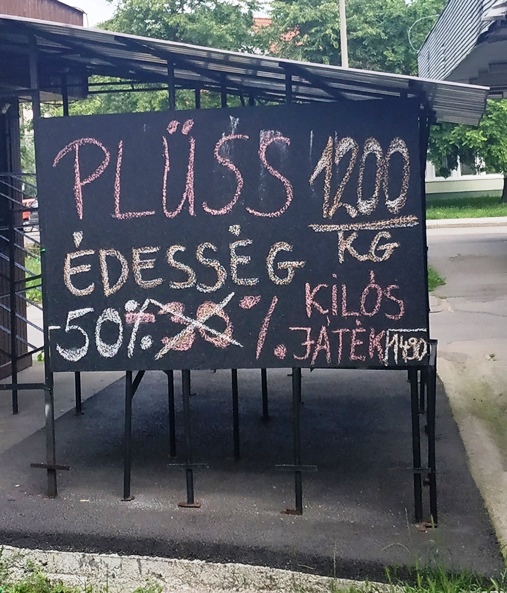 PLÜSS 1200
KG
ÉDESSÉG
-50%. -30%. KILÓS
JÁTÉK 1490